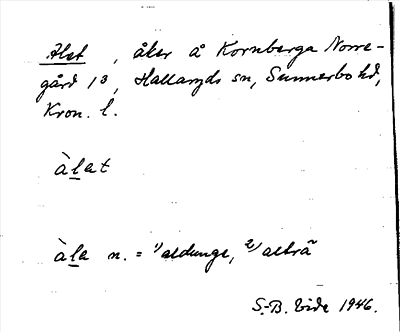 Alet, åker å Kornberga Norre-
gård 1³, Hallaryds sn, Sunnerbo hd,
Kron. l.
àlat
àla n. = ¹⁾aldunge, ²⁾alträ
S.-B. Vide 1946.